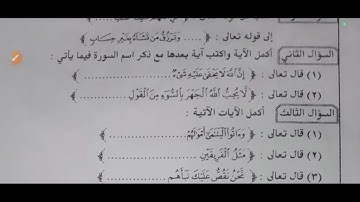 إلى قوله تعالى : ﴿ ...... وَتَرْزُقُ مَن تَشَاءُ بِغَيْرِ حِسَابٍ ﴾
السؤال الثاني أكمل الآية واكتب آية بعدها مع ذكر اسم السورة فيما يأتي :
(١) قال تعالى : ﴿ إِنَّ اللَّهَ لَا يَخْفَىٰ عَلَيْهِ شَيْءٌ ............ ﴾
(٢) قال تعالى : ﴿ لَّا يُحِبُّ اللَّهُ الْجَهْرَ بِالسُّوءِ مِنَ الْقَوْلِ ............ ﴾
السؤال الثالث أكمل الآيات الآتية :
(١) قال تعالى : ﴿ وَآتُوا الْيَتَامَىٰ أَمْوَالَهُمْ ............ ﴾
(٢) قال تعالى : ﴿ مَثَلُ الْفَرِيقَيْنِ ............ ﴾
(٣) قال تعالى : ﴿ نَّحْنُ نَقُصُّ عَلَيْكَ نَبَأَهُم ............ ﴾